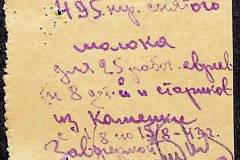 495 кгр. снятого
молока
для 25 работ. евреев
и 8 дет-й и стариков
из Каменки
1/8 по 15/8-43г.
Завфермой